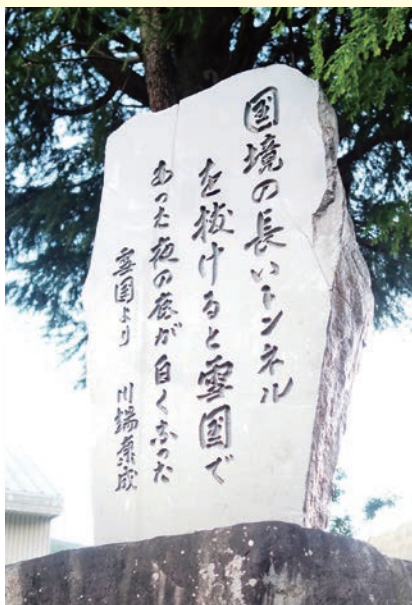 国境の長いトンネル
を抜けると雪国で
あった夜の底が白くなった
雪国より　川端康成